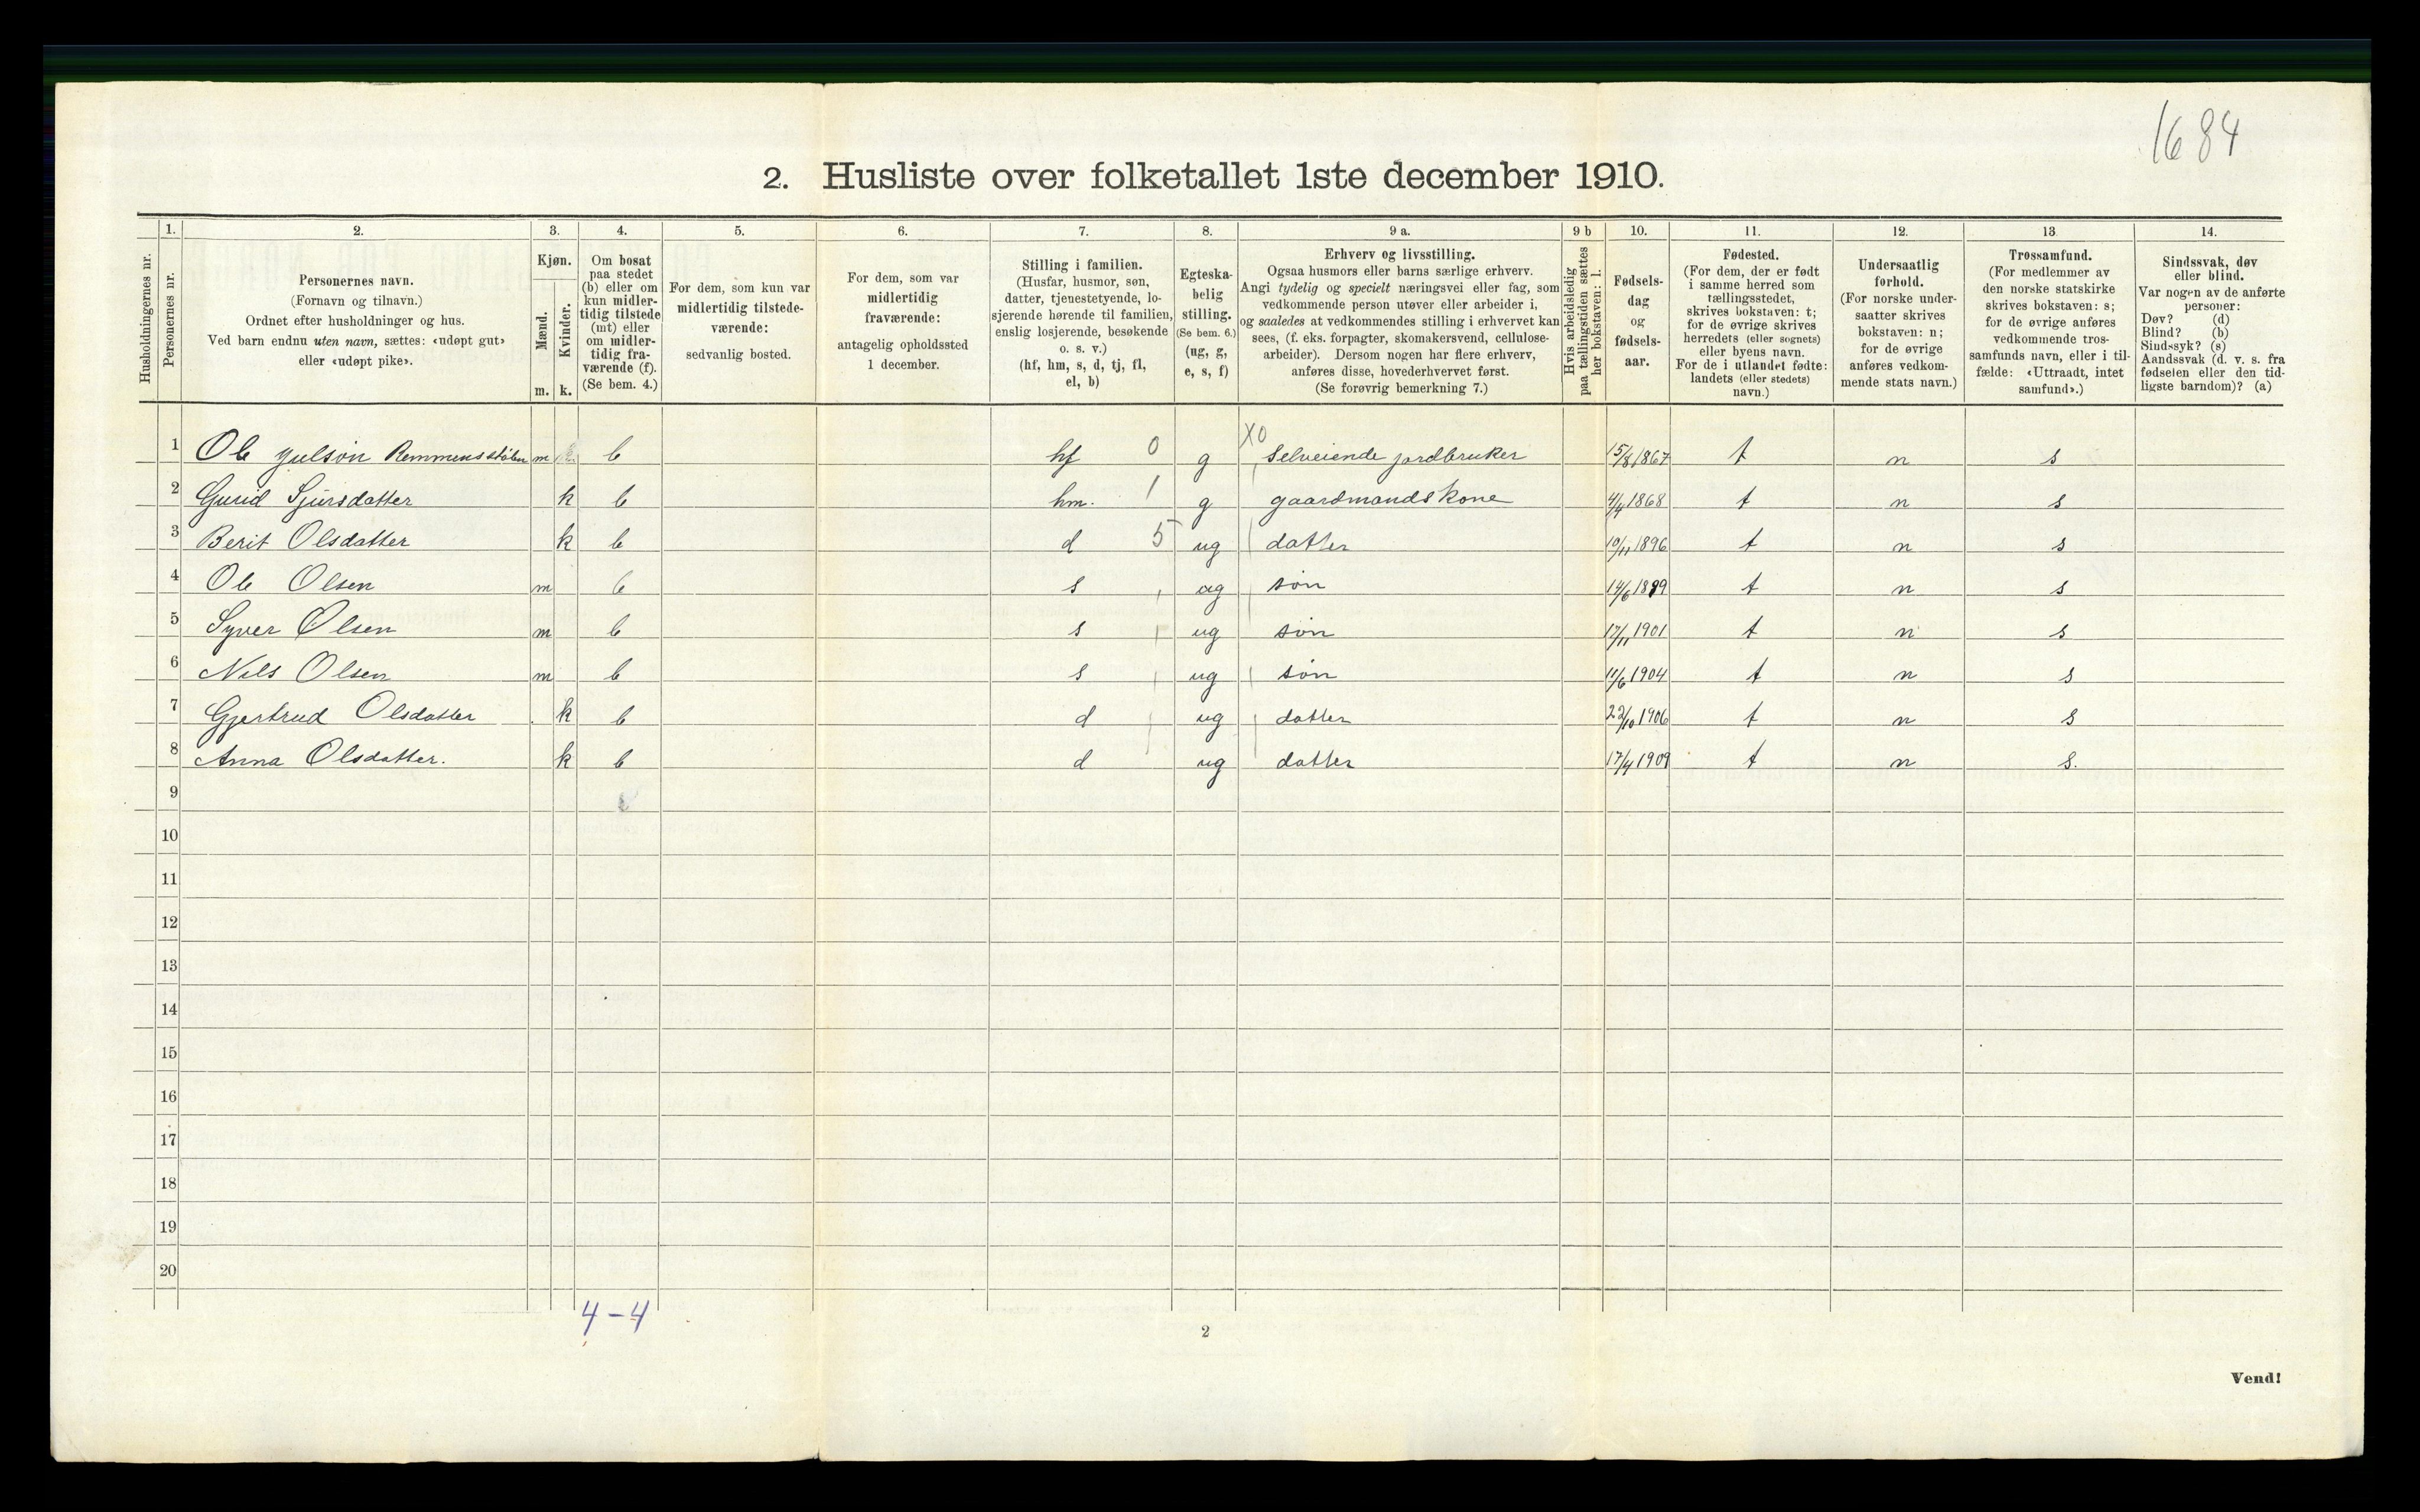 1684
2. Husliste over folketallet 1ste december 1910.
Husholdningernes nr.
1.
Personernes nr.
2.
Personernes navn.
(Fornavn og tilnavn.)
Ordnet efter husholdninger og hus.
Ved barn endnu uten navn, sættes: «udøpt gut»
eller «udøpt pike».
3.
Kjøn.
Mænd.
Kvinder.
m. k.
4.
Om bosat
paa stedet
(b) eller om
kun midler-
tidig tilstede
(mt) eller
om midler-
tidig fra-
værende (f).
(Se bem. 4.)
5.
For dem, som kun var
midlertidig tilstede-
værende:
sedvanlig bosted.
6.
For dem, som var
midlertidig
fraværende:
antagelig opholdssted
1 december.
7.
Stilling i familien.
(Husfar, husmor, søn,
datter, tjenestetyende, lo-
sjerende hørende til familien,
enslig losjerende, besøkende
o. s. v.)
(hf, hm, s, d, tj, fl,
el, b)
8.
Egteska-
belig
stilling.
(Se bem. 6.)
(ug, g,
e, s, f)
9 a.
Erhverv og livsstilling.
Ogsaa husmors eller barns særlige erhverv.
Angi tydelig og specielt næringsvei eller fag, som
vedkommende person utøver eller arbeider i,
og saaledes at vedkommendes stilling i erhvervet kan
sees, (f. eks. forpagter, skomakersvend, cellulose-
arbeider). Dersom nogen har flere erhverv,
anføres disse, hovederhvervet først.
(Se forøvrig bemerkning 7.)
9 b
Hvis arbeidsledig
paa tællingstiden sættes
her bokstaven: l.
10.
Fødsels-
dag
og
fødsels-
aar.
11.
Fødested.
(For dem, der er født
i samme herred som
tællingsstedet,
skrives bokstaven: t;
for de øvrige skrives
herredets (eller sognets)
eller byens navn.
For de i utlandet fødte:
landets (eller stedets)
navn.)
12.
Undersaatlig
forhold.
(For norske under-
saatter skrives
bokstaven: n;
for de øvrige
anføres vedkom-
mende stats navn.)
13.
Trossamfund.
(For medlemmer av
den norske statskirke
skrives bokstaven: s;
for de øvrige anføres
vedkommende tros-
samfunds navn, eller i til-
fælde: «Uttraadt, intet
samfund».)
14.
Sindssvak, døv
eller blind.
Var nogen av de anførte
personer:
Døv? (d)
Blind? (b)
Sindssyk? (s)
Aandssvak (d. v. s. fra
fødselen eller den tid-
ligste barndom)? (a)
1 Ole Julson Remmensstølen m b hf 0 g X0 Selveiende jordbruker 15/8 1867 t n s
2 Gurid Sjursdatter k b hm. 1 g gaardmandskone 4/4 1868 t n s
3 Berit Olsdatter k b d 5 ug datter 10/11 1896 t n s
4 Ole Olsen m b s ug søn 14/6 1899 t n s
5 Syver Olsen m b s ug søn 17/11 1901 t n s
6 Nils Olsen m b s ug søn 11/6 1904 t n s
7 Gjertrud Olsdatter k b d ug datter 22/10 1906 t n s
8 Anna Olsdatter. k b d ug datter 17/4 1909 t n s.
9
10
11
12
13
14
15
16
17
18
19
20
4-4
2
Vend!